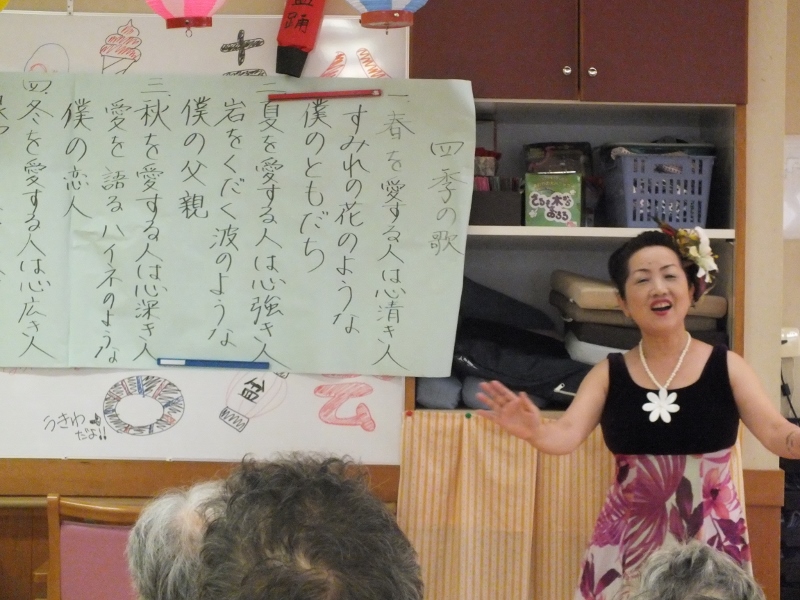 四季の歌
一、春を愛する人は心清き人
すみれの花のような
僕のともだち
二、夏を愛する人は心強き人
岩をくだく波のような
僕の父親
三、秋を愛する人は心深き人
愛を語るハイネのような
僕の恋人
四、冬を愛する人は心広き人
盆踊
盆
うきわ
だよ!!